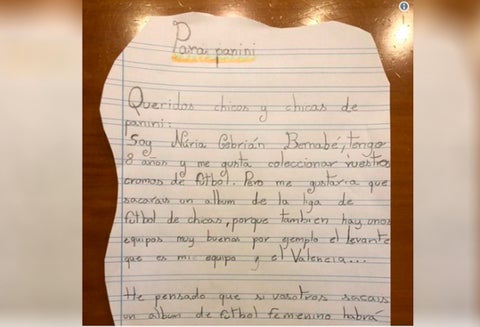 Para: panini
Queridos chicos y chicas de
panini:
Soy Núria Cebrián Bernabé, tengo
8 años y me gusta coleccionar vuestros
cromos de fútbol. Pero me gustaria que
sacarais un album de la liga de
fútbol de chicas, porque tambien hay unos
equipos muy buenos por ejemplo el levante
que es mi equipo y el Valencia...
He pensado que si vosotros sacais
un album de fútbol femenino habrá